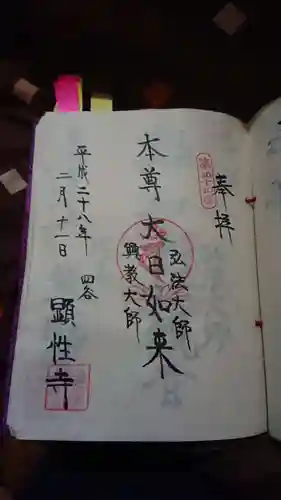 奉拝
弘法大師
本尊大日如来
興教大師
四谷 顕性寺
平成二十八年
二月十一日